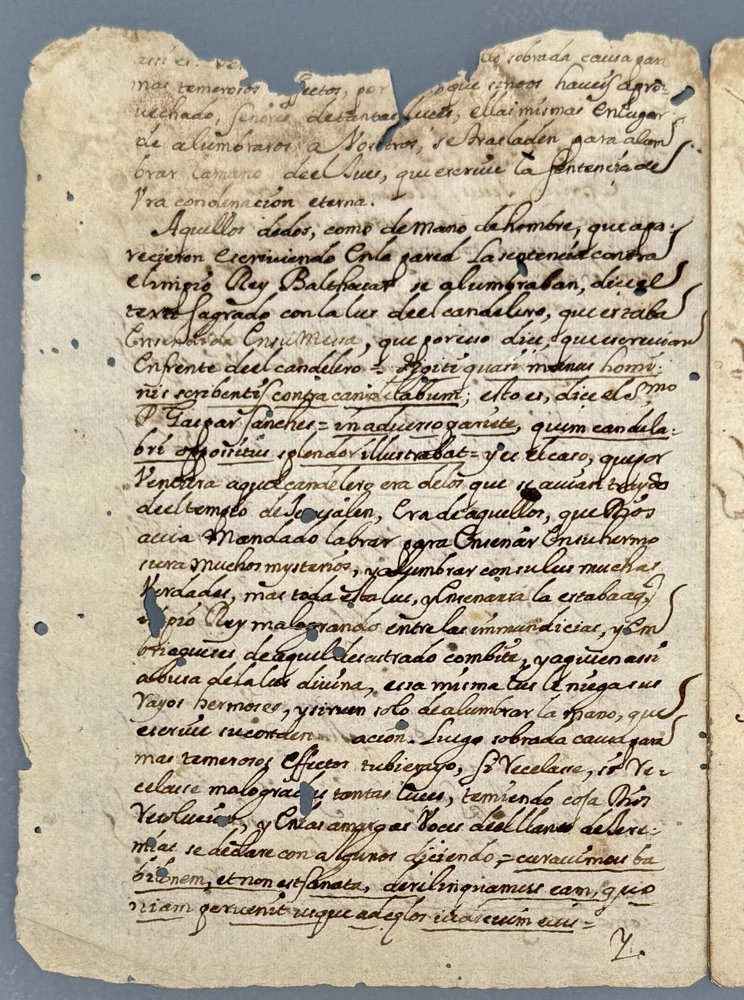 sobrada causa para
mas temerosos effectos, por que si nos haveis apro-
vechado, señores, de tantas luces, ellas mismas en lugar
de alumbraros a Vosotros, se trasladen para alam
brar la mano de el Jues, que escrive la sentencia de
Vra condenacion eterna.
Aquellos dedos, como de mano de hombre, que apa-
recieron escriviendo en la pared la sentencia contra
el impio Rey Balthasar se alumbraban, dice el
texto sagrado con la lus de el candelero, que estaba
en su Messa, que por esso dice, que escrevian
enfrente de el candelero = digiti quasi manus homi-
nis scribentis contra candelabrum; esto es, dice el
P. Gaspar Sanches = in adverso pariete, quem candela-
bri oppositus splendor illustrabat = y es el caso, que por
Ventura aquel candelero era de los que se avian traydo
de el templo de era de aquellos, que Dios
avia Mandado labrar para Ensenar En su hermo
sura muchos mysterios, y alumbrar con su lus muchas
Verdades, mas toda esta lus, y ensenansa la estaba aql
impio Rey malogrando entre las immundicias, y em
briagueses de aquel desastrado combite, y a quien assi
abusa de la lus divina, essa misma lus le niega sus
rayos hermosos, y sirven solo de alumbrar la mano, que
escrive su conden acion. Luego sobrada causa para
mas temerosos effectos tubiera yo, si recelasse, si re-
celasse malogradas tantas luces, temiendo cosa Dios
y en las amargas Voces de el llanto de Jere-
mias se declare con algunos diciendo = curavimus ba
bilonem, et non est sanata, derilinquamus eam, quo
niam pervenit usque ad eglos iudicium eius =
Y.